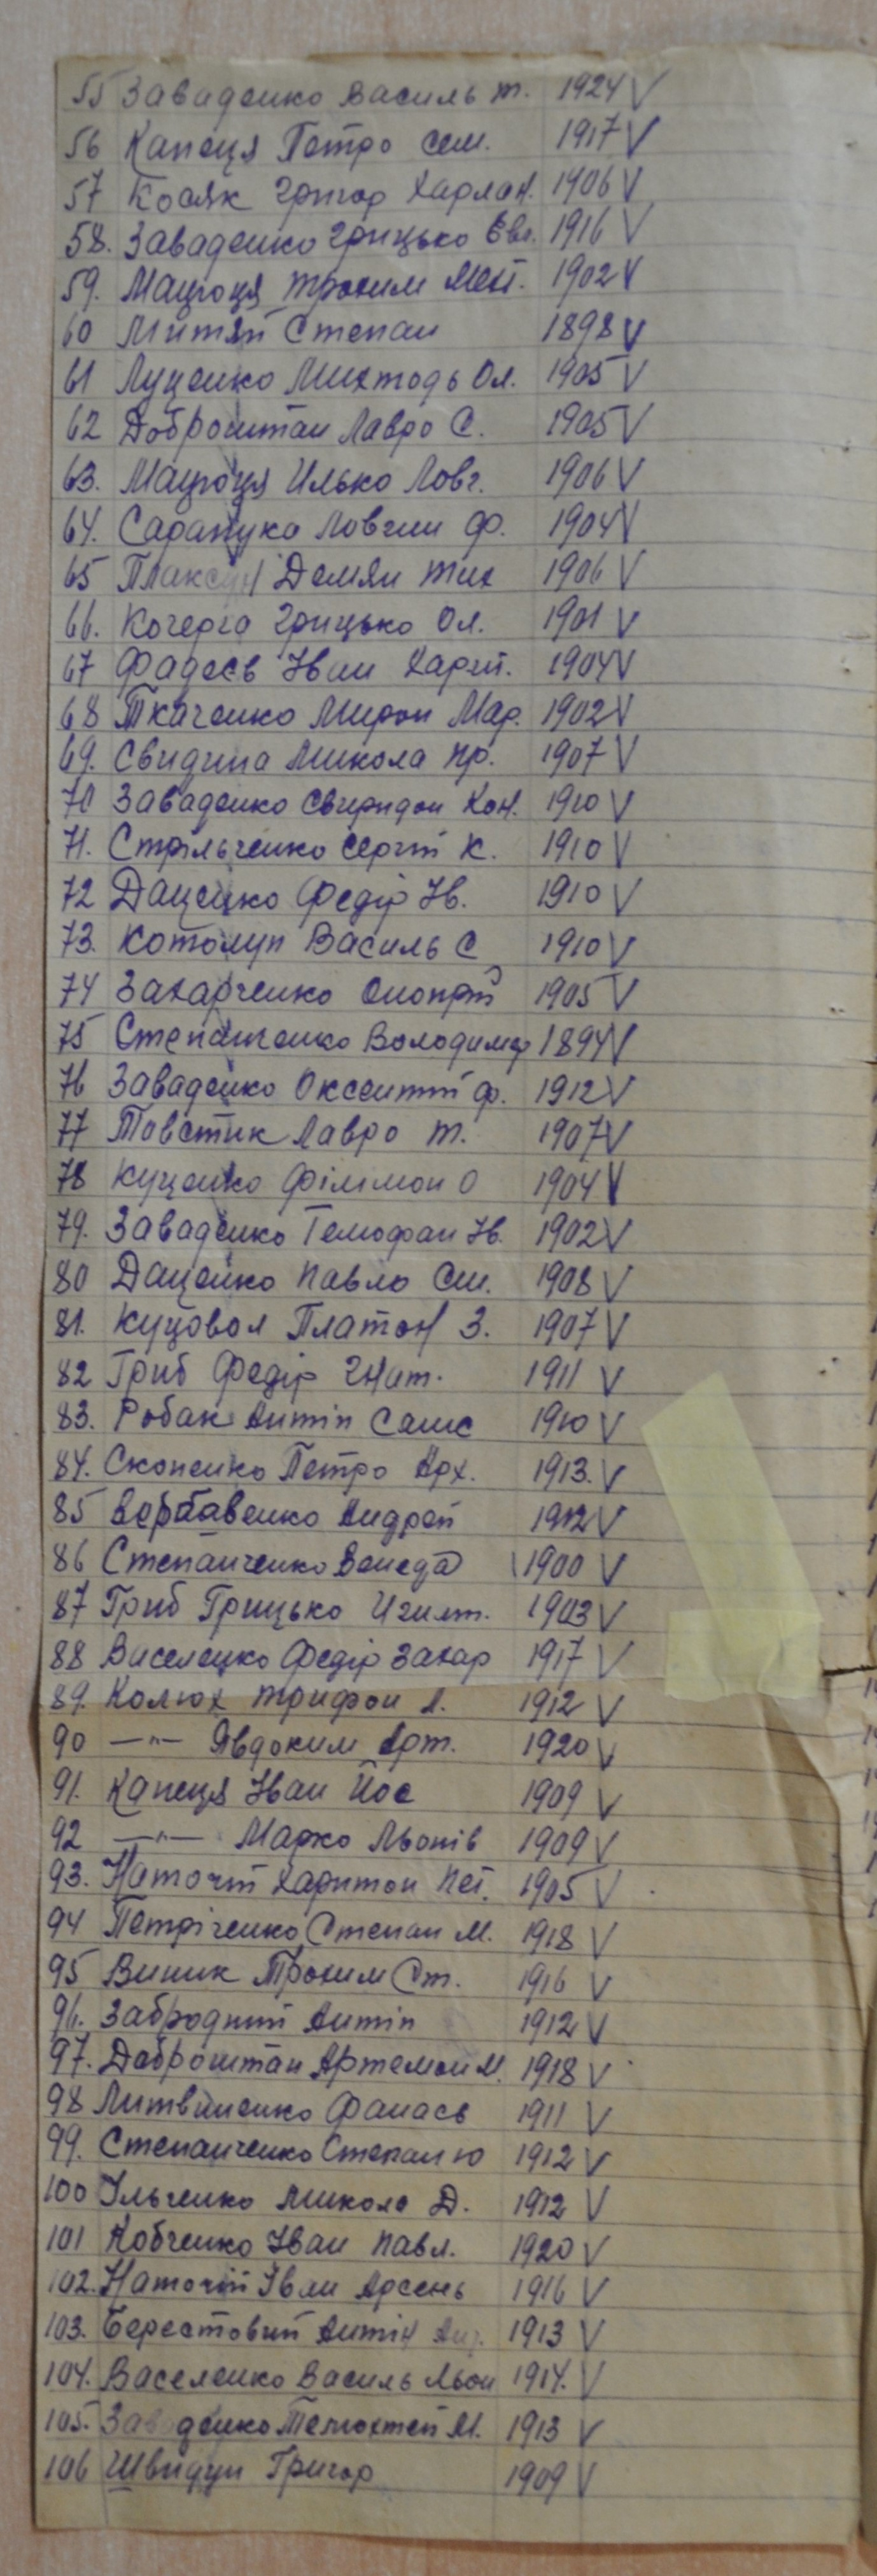 55 Заваденко Василь Т. 1924 V
56 Капеця Петро Сем. 1917 V
57 Косяк Григор Харлам. 1906 V
58. Заваденко Грицько Євг. 1916 V
59. Мацюця Трохим Мет. 1902 V
60 Митяй Степан 1898 V
61 Луценко Михтодь Ол. 1905 V
62 Доброштан Лавро С. 1905 V
63. Мацюця Илько Ловг. 1906 V
64. Сарапука Ловгин Ф. 1904 V
65 Плаксун Демян Тих 1906 V
66. Кочерга Грицько Ол. 1901 V
67 Фадеєв Іван Харит. 1904 V
68 Ткаченко Мирон Мар. 1902 V
69. Свидина Микола Пр. 1907 V
70 Заваденко Свиридон Кон. 1910 V
71. Стрільченко Сергій К. 1910 V
72 Даценко Федір Ів. 1910 V
73. Котолуп Василь С 1910 V
74 Захарченко Онопрій 1905 V
75 Степанченко Володимер 1894 V
76 Заваденко Оксентій Ф. 1912 V
77 Товстик Лавро Т. 1907 V
78 Куценко Філімон О 1904 V
79. Заваденко Темофан Ів. 1902 V
80 Даценко Павло Сим. 1908 V
81. Куцовол Платон З. 1907 V
82 Гриб Федір Гнат. 1911 V
83. Робак Антін Самс 1910 V
84. Скопенко Петро Арх. 1913. V
85 Ворбавенко Андрей 1912 V
86 Степанченко Венеда 1900 V
87 Гриб Грицько Игнат. 1903 V
88 Виселецко Федір Захар 1917 V
89. Колюх Трифон А. 1912 V
90 —"— Явдоким Арт. 1920 V
91. Капеця Іван Йос 1909 V
92 —"— Марко Льонів 1909 V
93. Наточій Харитон Пет. 1905 V
94 Петріченко Степан М. 1918 V
95 Виник Трохим Ст. 1916 V
96. Забродний Антін 1912 V
97. Доброштан Артемон М. 1918 V
98 Литвиненко Фанась 1911 V
99. Степанченко Степан Ю 1912 V
100 Ільченко Микола Д. 1912 V
101 Кобченко Іван Павл. 1920 V
102. Наточій Іван Арсень 1916 V
103. Берестовий Антін 1913 V
104. Василенко Василь Льон 1914. V
105. Заваденко Темохтей М. 1913 V
106 Швидун Григор 1909 V